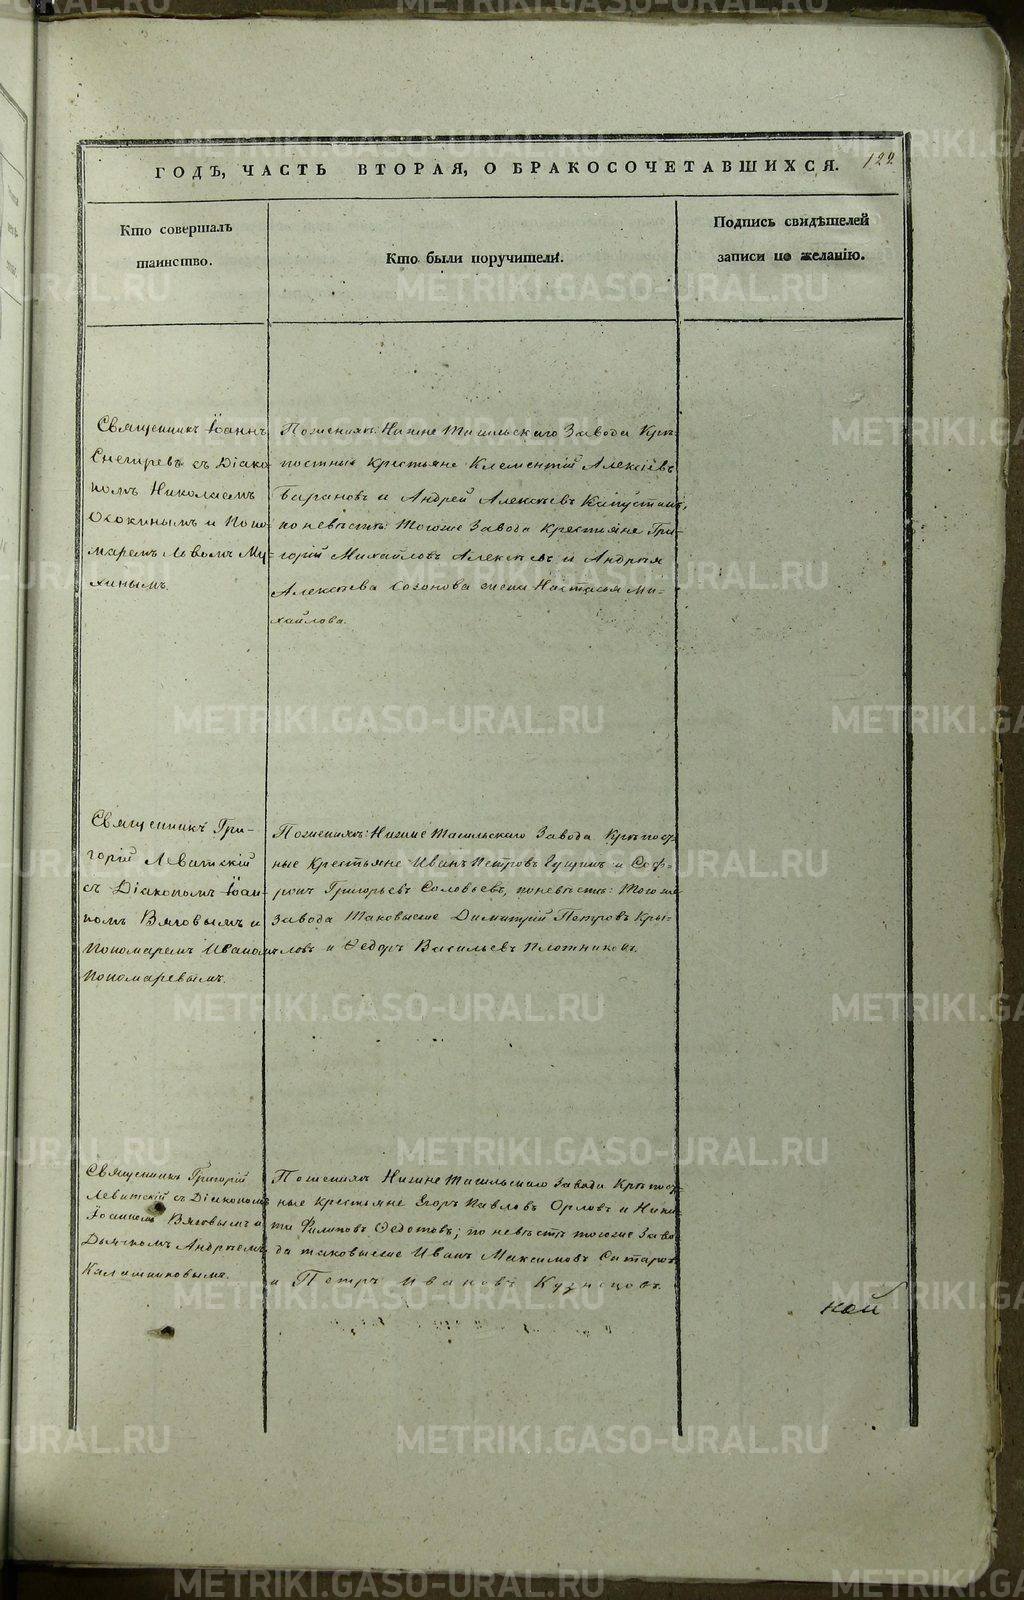 122
ГОДЪ, ЧАСТЬ ВТОРАЯ, О БРАКОСОЧЕТАВШИХСЯ.
Кто совершалъ
таинство.
Кто были поручители.
Подпись свидѣтелей
записи по желанію.
Священникъ Іоаннъ
Снегиревъ съ Діако
номъ Николаемъ
Ококинымъ и Поно-
маремъ Львомъ Му-
хинымъ.
По женихѣ: Нижне Тагильскаго Завода Крѣ-
постные крестьяне Клементій Алексѣевъ
Барановъ и Андрей Алексѣевъ Капустинъ,
по невѣстѣ: Тогоже Завода крестьяне Гри-
горій Михайловъ Алексѣевъ и Андрея
Алексѣева Созонова жена Настасья Ми-
хайлова.
Священникъ Гри-
горій Левитскій
съ Діакономъ Іоан-
номъ Вяговымъ и
Пономаремъ Иваномъ
Пономаревымъ.
По женихѣ: Нижне Тагильскаго Завода Крѣпост-
ные крестьяне Иванъ Петровъ Гущинъ и Соф-
ронъ Григорьевъ Соловьевъ, по невѣстѣ: Тогоже
Завода таковыеже Димитрій Петровъ Кры-
ловъ и Ѳедоръ Васильевъ Плотниковъ.
Священникъ Григорій
Левитскій съ Діакономъ
Іоанномъ Вяговымъ и
Дьячкомъ Андреемъ
Калашниковымъ.
По женихѣ Нижне Тагильскаго Завода Крѣпост-
ные крестьяне Егоръ Павловъ Орловъ и Ники
та Филиповъ Ѳедотовъ; по невѣстѣ тогоже Заво
да таковыеже Иванъ Максимовъ
и Петръ Ивановъ Кузнецовъ.
кой
METRIKI.GASO-URAL.RU